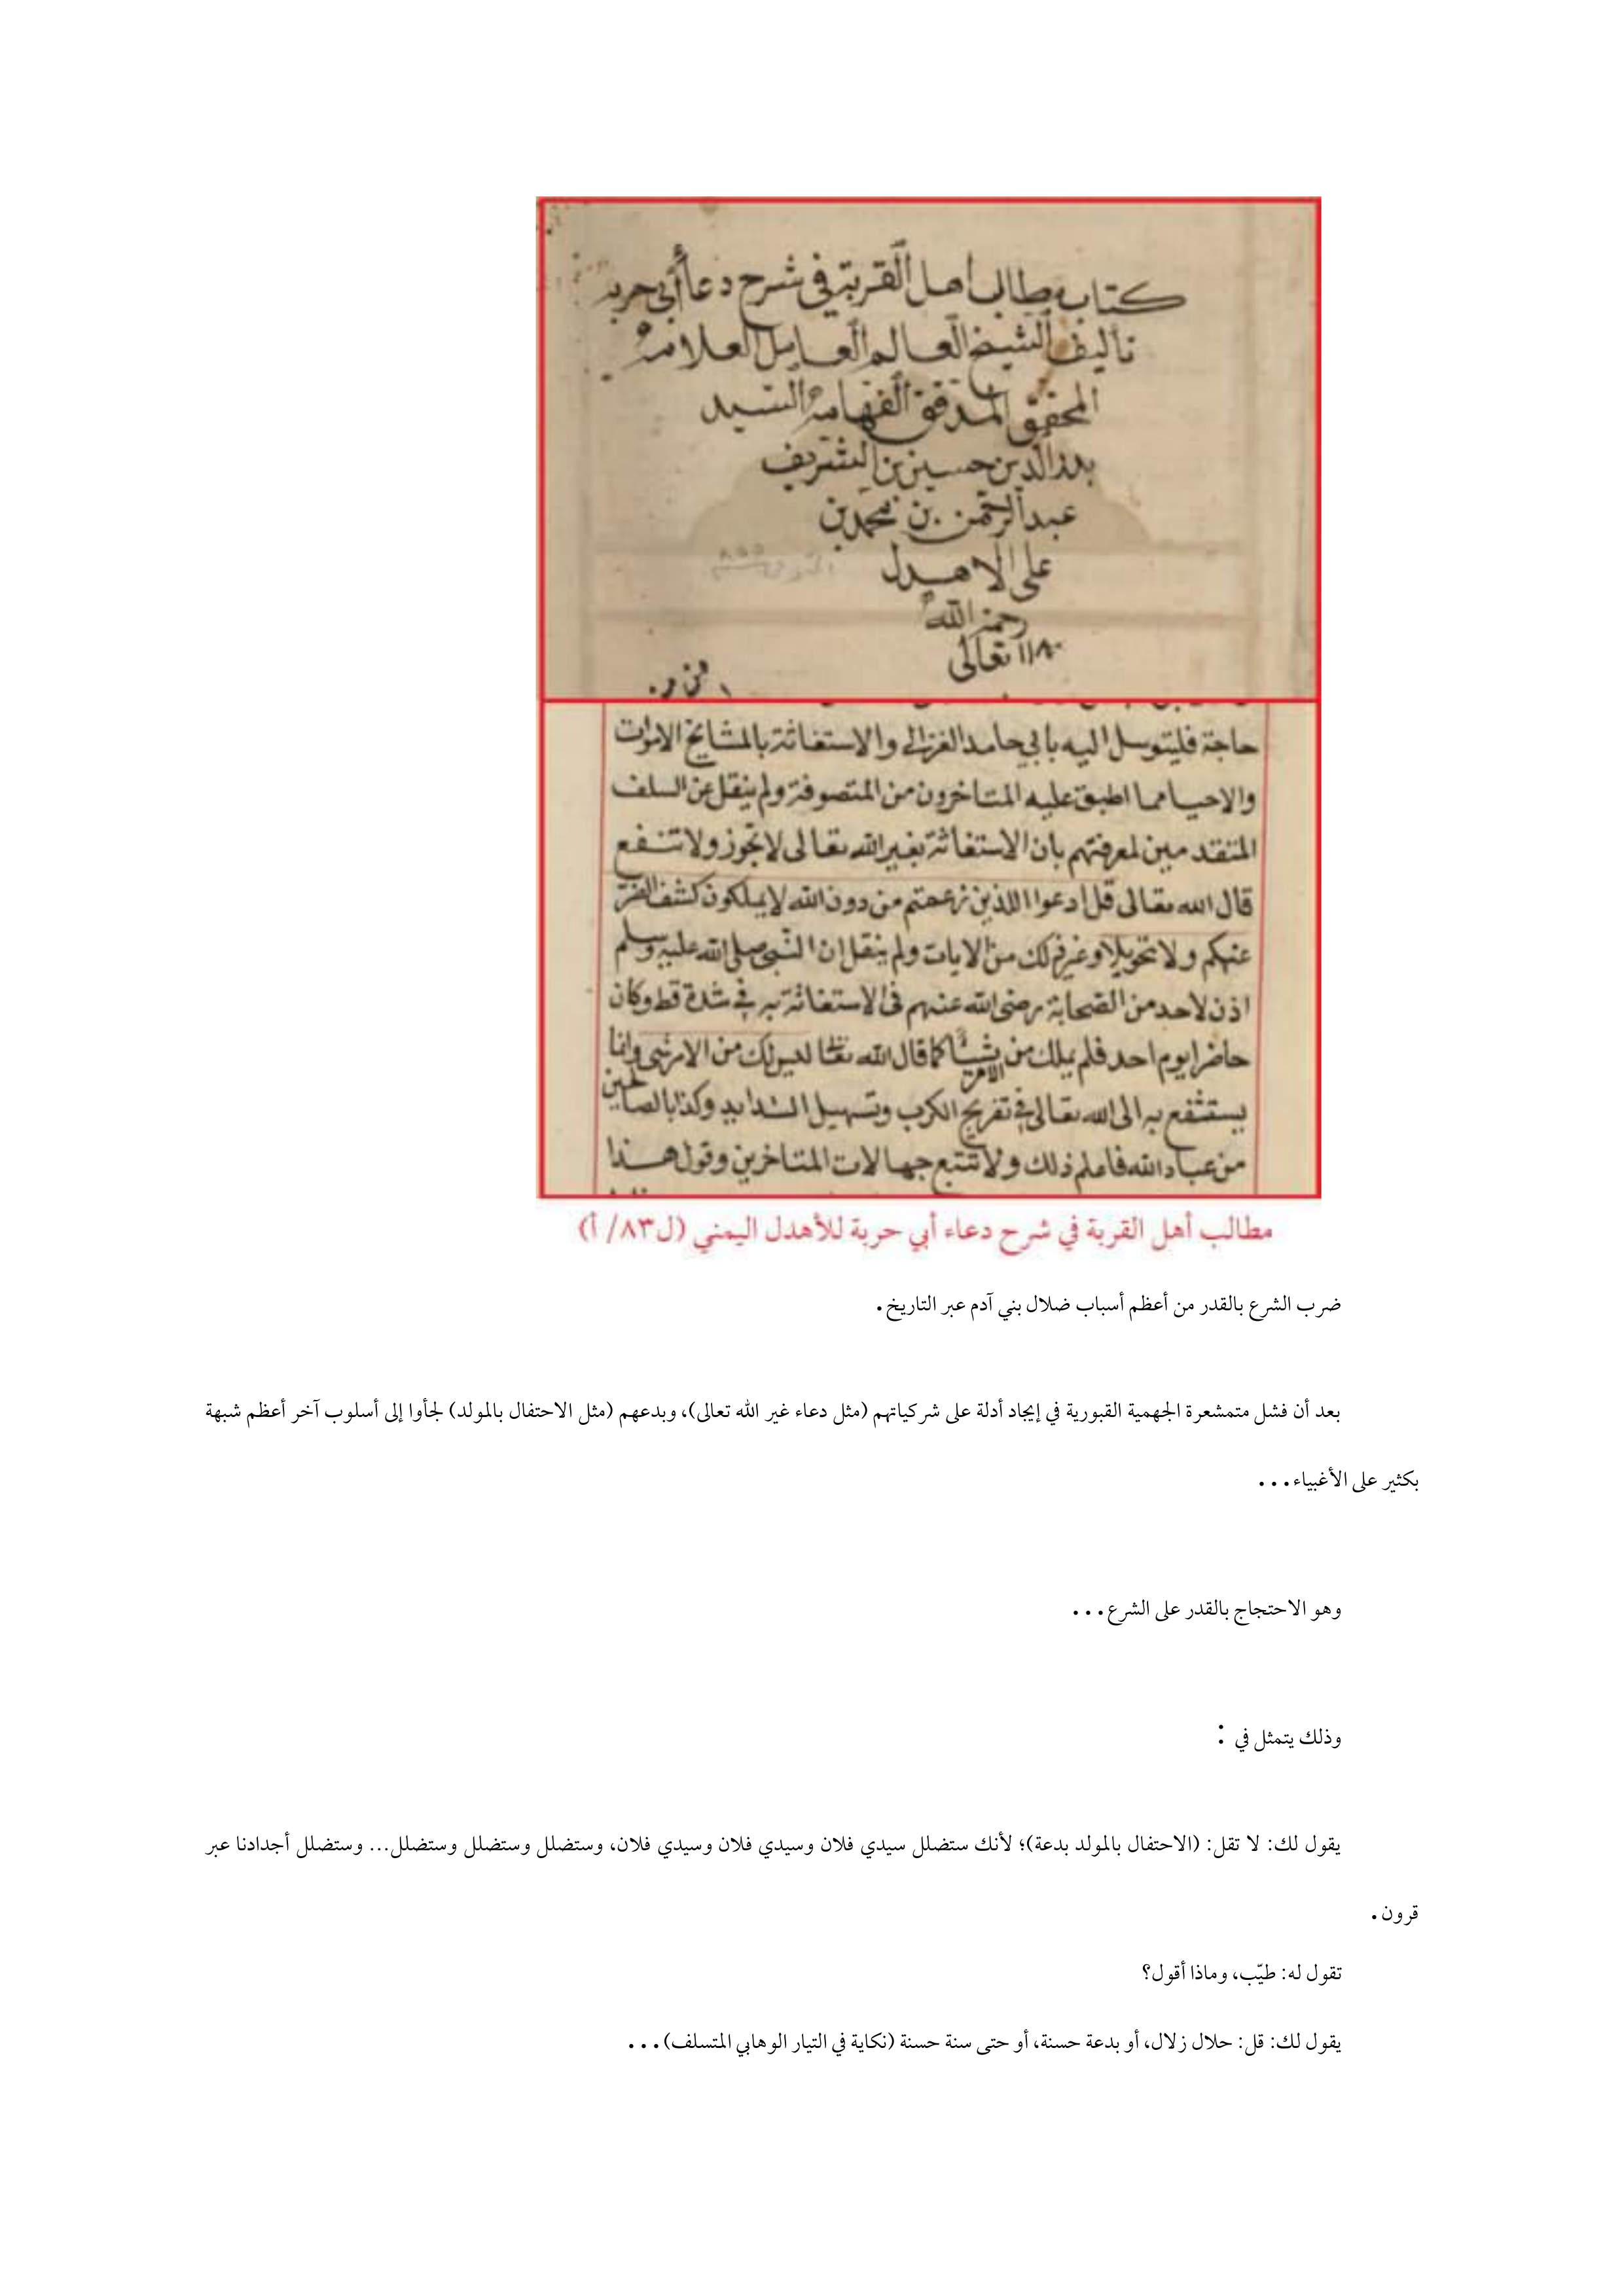 كتاب مطالب اهل القربة في شرح دعا أبي حربه
تأليف الشيخ العالم العامل العلامة
المحقق المدقق الفهامة السيد
بدر الدين حسين بن الشريف
عبد الرحمن بن محمد بن
على الاهدل
رحمه الله
تعالى ١١٨٠
٨٥٥
حاجة فليتوسل اليه بابي حامد الغزالي والاستغاثة بالمشايخ الاموات
والاحيا مما اطبق عليه المتاخرون من المتصوفة ولم ينقل عن السلف
المتقدمين لمعرفتهم بان الاستغاثة بغير الله تعالى لا تجوز ولا تنفع
قال الله تعالى قل ادعوا اللذين زعمتم من دون الله لا يملكون كشف الضر
عنكم ولا تحويلا وغير ذلك من الايات ولم ينقل ان النبى صلى الله عليه وسلم
اذن لاحد من الصحابة رضى الله عنهم فى الاستغاثة به في شدة قط وكان
حاضرا يوم احد فلم يملك من الامر شيأ كما قال الله تعا ليس لك من الامر شى وانما
يستشفع به الى الله تعالى في تفريج الكرب وتسهيل الشدايد وكذا بالصالحين
من عباد الله فاعلم ذلك ولا تتبع جهالات المتاخرين وقول هذا
مطالب أهل القربة في شرح دعاء أبي حربة للأهدل اليمني (ل٨٣/ أ)
ضرب الشرع بالقدر من أعظم أسباب ضلال بني آدم عبر التاريخ.
بعد أن فشل متمشعرة الجهمية القبورية في إيجاد أدلة على شركياتهم (مثل دعاء غير الله تعالى)، وبدعهم (مثل الاحتفال بالمولد) لجأوا إلى أسلوب آخر أعظم شبهة
بكثير على الأغبياء...
وهو الاحتجاج بالقدر على الشرع...
وذلك يتمثل في :
يقول لك: لا تقل: (الاحتفال بالمولد بدعة)؛ لأنك ستضلل سيدي فلان وسيدي فلان وسيدي فلان، وستضلل وستضلل وستضلل... وستضلل أجدادنا عبر
قرون.
تقول له: طيّب، وماذا أقول؟
يقول لك: قل: حلال زلال، أو بدعة حسنة، أو حتى سنة حسنة (نكاية في التيار الوهابي المتسلف)...